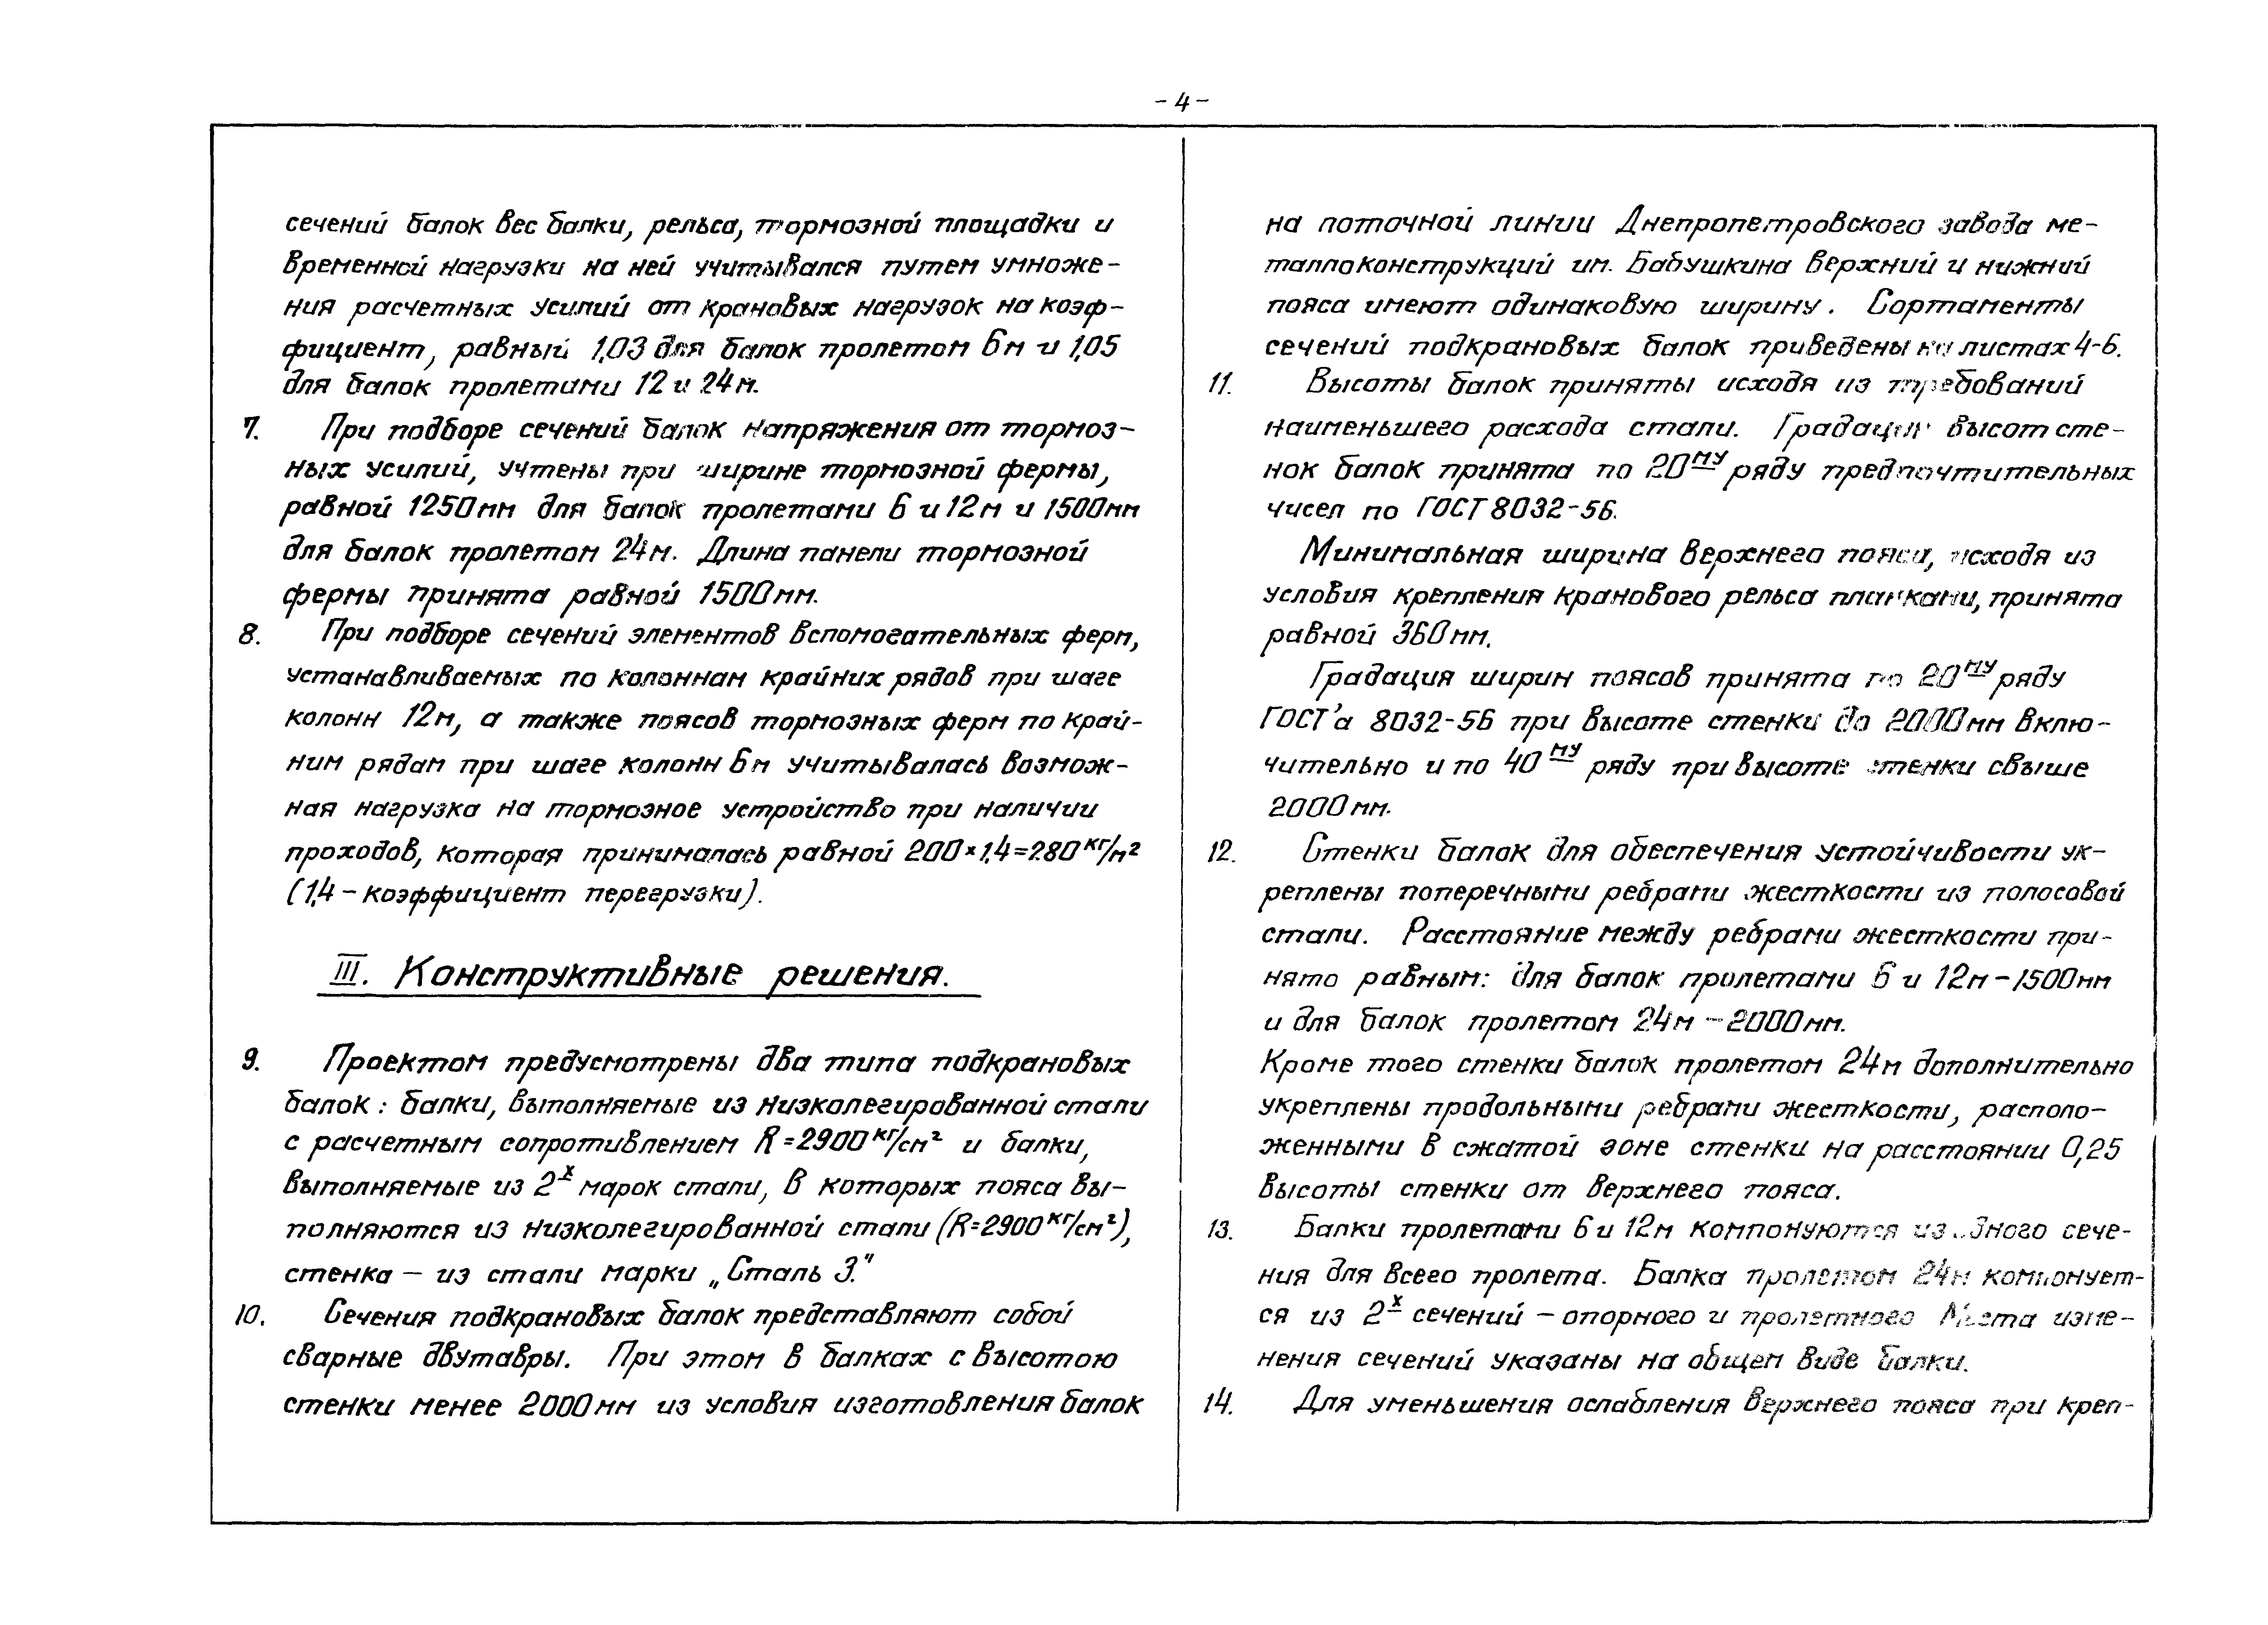 - 4 -
сечений балок вес балки, рельса, тормозной площадки и
временной нагрузки на ней учитывался путем умноже-
ния расчетных усилий от крановых нагрузок на коэф-
фициент, равный 1,03 для балок пролетом 6м и 1,05
для балок пролетами 12 и 24м.
7. При подборе сечений балок напряжения от тормоз-
ных усилий, учтены при ширине тормозной фермы,
равной 1250мм для балок пролетами 6 и 12м и 1500мм
для балок пролетом 24м. Длина панели тормозной
фермы принята равной 1500мм.
8. При подборе сечений элементов вспомогательных ферм,
устанавливаемых по колоннам крайних рядов при шаге
колонн 12м, а также поясов тормозных ферм по край-
ним рядам при шаге колонн 6м учитывалась возмож-
ная нагрузка на тормозное устройство при наличии
проходов, которая принималась равной 200×1,4=280 кг/м²
(1,4 - коэффициент перегрузки).
III. Конструктивные решения.
9. Проектом предусмотрены два типа подкрановых
балок: балки, выполняемые из низколегированной стали
с расчетным сопротивлением R=2900 кг/см² и балки,
выполняемые из 2х марок стали, в которых пояса вы-
полняются из низколегированной стали (R=2900 кг/см²),
стенка - из стали марки „Сталь 3."
10. Сечения подкрановых балок представляют собой
сварные двутавры. При этом в балках с высотою
стенки менее 2000мм из условия изготовления балок
на поточной линии Днепропетровского завода ме-
таллоконструкций им. Бабушкина верхний и нижний
пояса имеют одинаковую ширину. Сортаменты
сечений подкрановых балок приведены на листах 4-6.
11. Высоты балок приняты исходя из требований
наименьшего расхода стали. Градация высот сте-
нок балок принята по 20му ряду предпочтительных
чисел по ГОСТ 8032-56.
Минимальная ширина верхнего пояса, исходя из
условия крепления кранового рельса планками, принята
равной 360мм.
Градация ширин поясов принята по 20му ряду
ГОСТ'а 8032-56 при высоте стенки до 2000мм вклю-
чительно и по 40му ряду при высоте стенки свыше
2000мм.
12. Стенки балок для обеспечения устойчивости ук-
реплены поперечными ребрами жесткости из полосовой
стали. Расстояние между ребрами жесткости при-
нято равным: для балок пролетами 6 и 12м - 1500мм
и для балок пролетом 24м - 2000мм.
Кроме того стенки балок пролетом 24м дополнительно
укреплены продольными ребрами жесткости, располо-
женными в сжатой зоне стенки на расстоянии 0,25
высоты стенки от верхнего пояса.
13. Балки пролетами 6 и 12м компонуются из одного сече-
ния для всего пролета. Балка пролетом 24м компонует-
ся из 2х сечений - опорного и пролетного. Места изме-
нения сечений указаны на общем виде балки.
14. Для уменьшения ослабления верхнего пояса при креп-